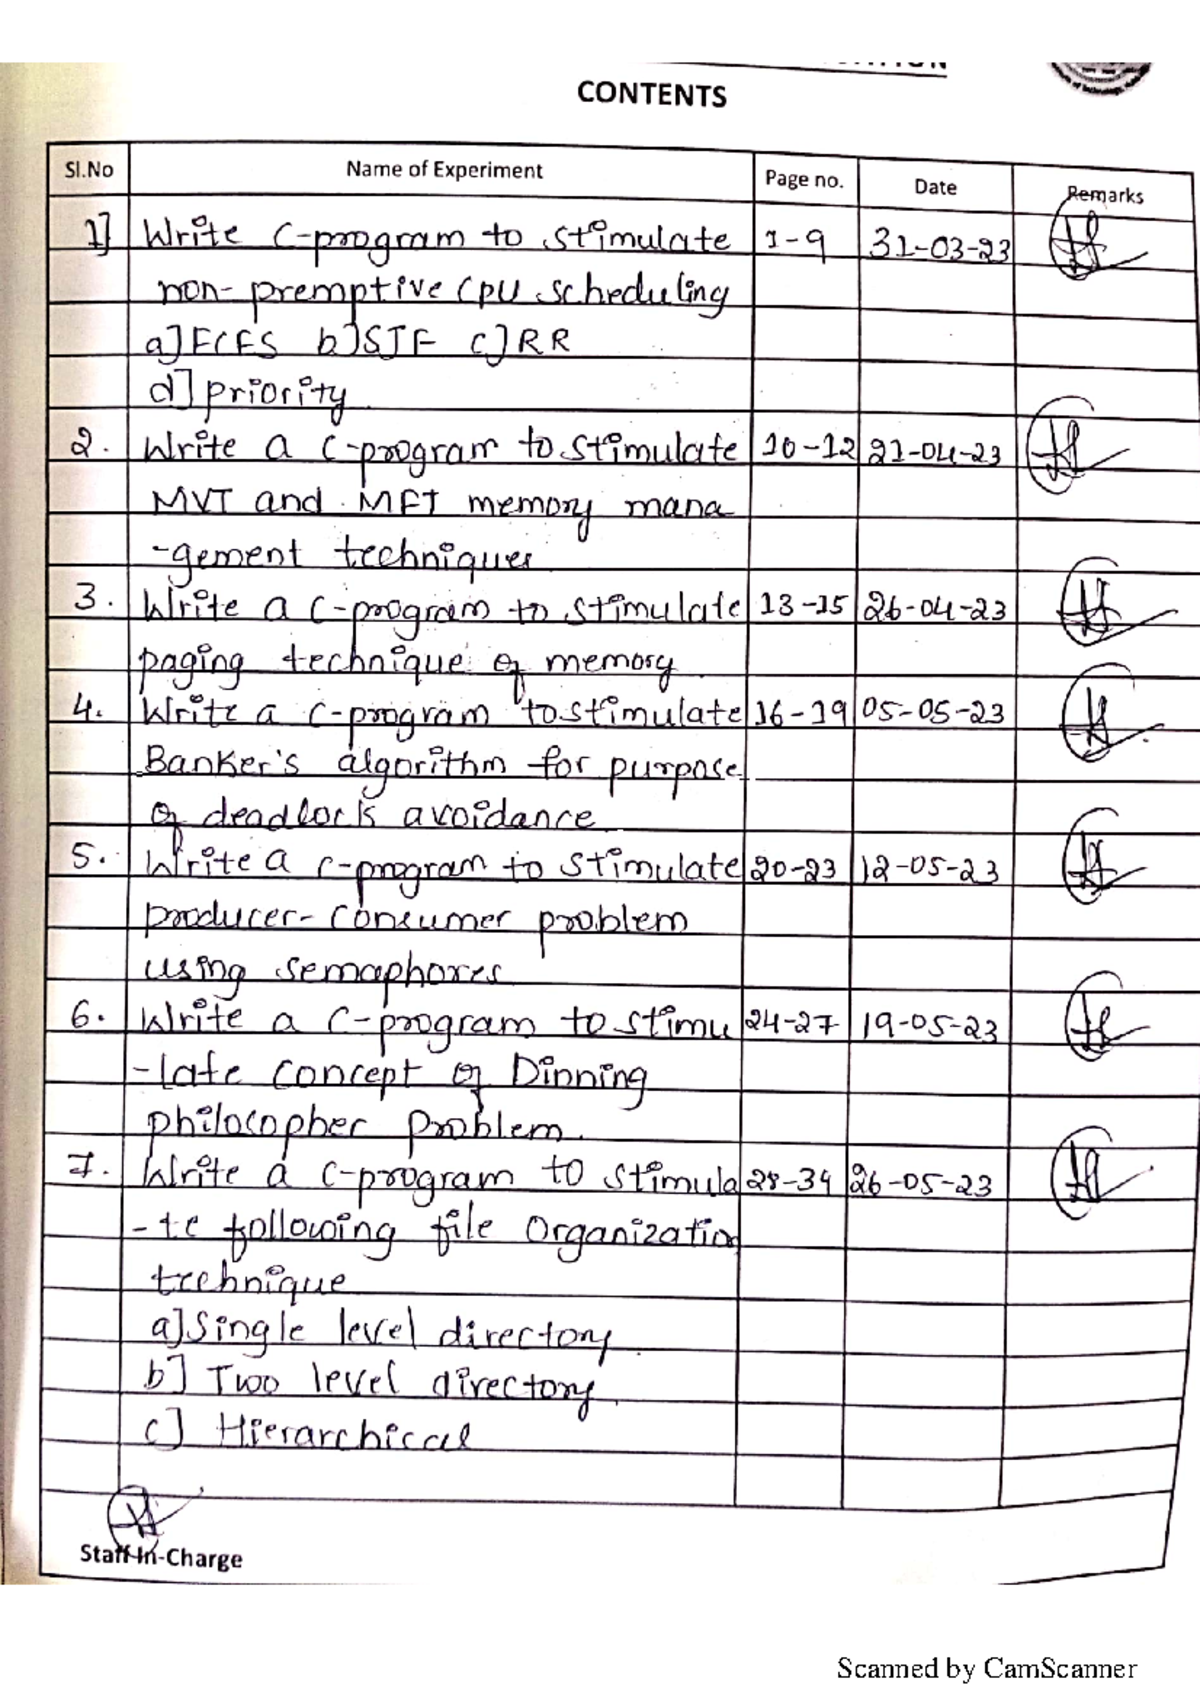 CONTENTS
Sl.No Name of Experiment Page no. Date Remarks
1] Write C-program to stimulate 1-9 31-03-23
non-premptive CPU scheduling
a]FCFS b]SJF c]RR
d]priority
2. Write a C-program to stimulate 10-12 21-04-23
MVT and MFT memory mana
-gement techniques
3. Write a C-program to stimulate 13-15 26-04-23
paging technique of memory
4. Write a C-program to stimulate 16-19 05-05-23
Banker's algorithm for purpose
of deadlock avoidance
5. Write a C-program to stimulate 20-23 12-05-23
producer-consumer problem
using semaphores
6. Write a C-program to stimu 24-27 19-05-23
-late concept of Dinning
philosopher problem.
7. Write a C-program to stimula 28-34 26-05-23
-te following file Organization
technique
a]Single level directory
b] Two level directory
c] Hierarchical
Staff In-Charge
Scanned by CamScanner